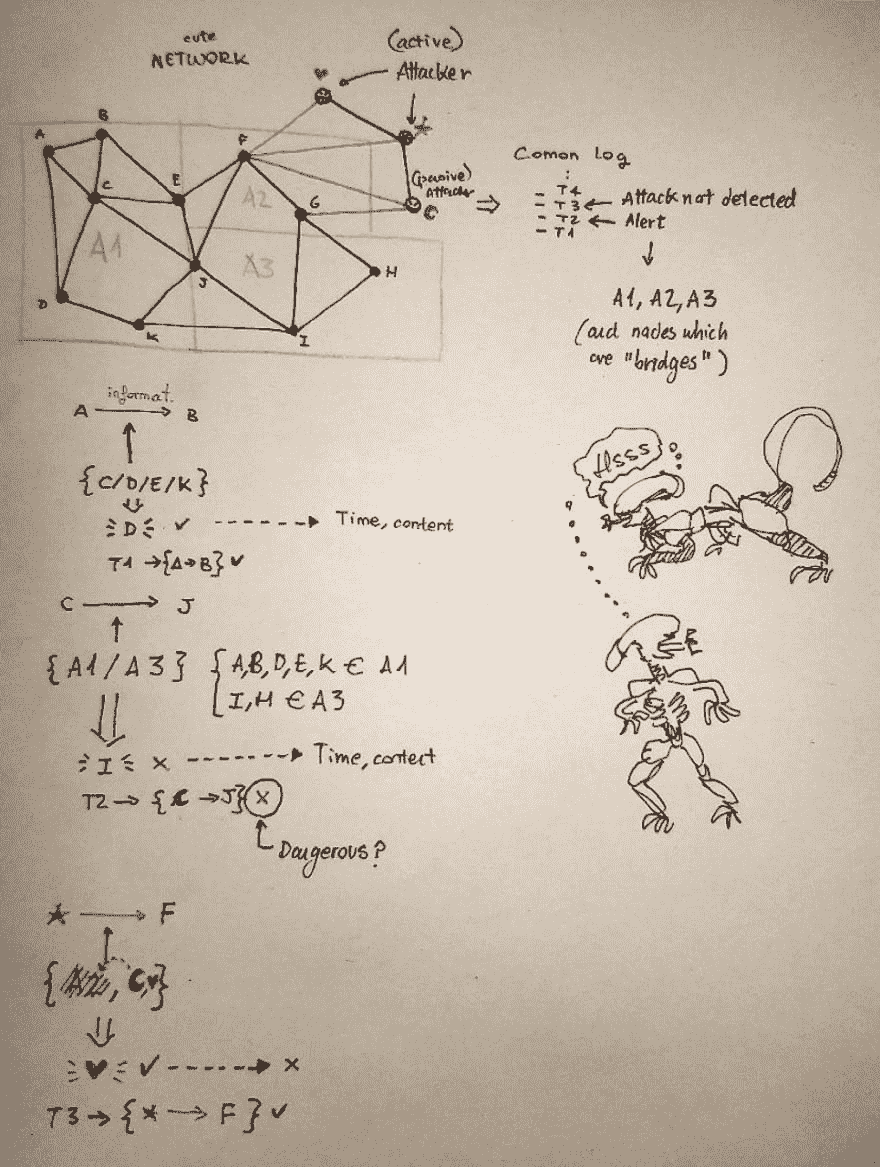 cute
NETWORK
(active)
Attacker
♥
★
(passive)
Attacker
C
⇒
A
B
C
D
E
F
G
H
I
J
K
A1
A2
A3
Comon Log
⋮
– T4
– T3 ← Attack not detected
– T2 ← Alert
– T1
↓
A1, A2, A3
(and nodes which
are "bridges")
informat.
A → B
↑
{C/D/E/K}
⇓
D ✓ ---> Time, content
T1 → {A→B} ✓
C → J
↑
{A1/A3} { A,B,D,E,K ∈ A1
I,H ∈ A3
⇓
I × ---> Time, content
T2 → {C → J} ×
Dangerous?
★ → F
↑
{ , C,♥}
⇓
♥ ✓ ---> ×
T3 → {★ → F} ✓
Hsss